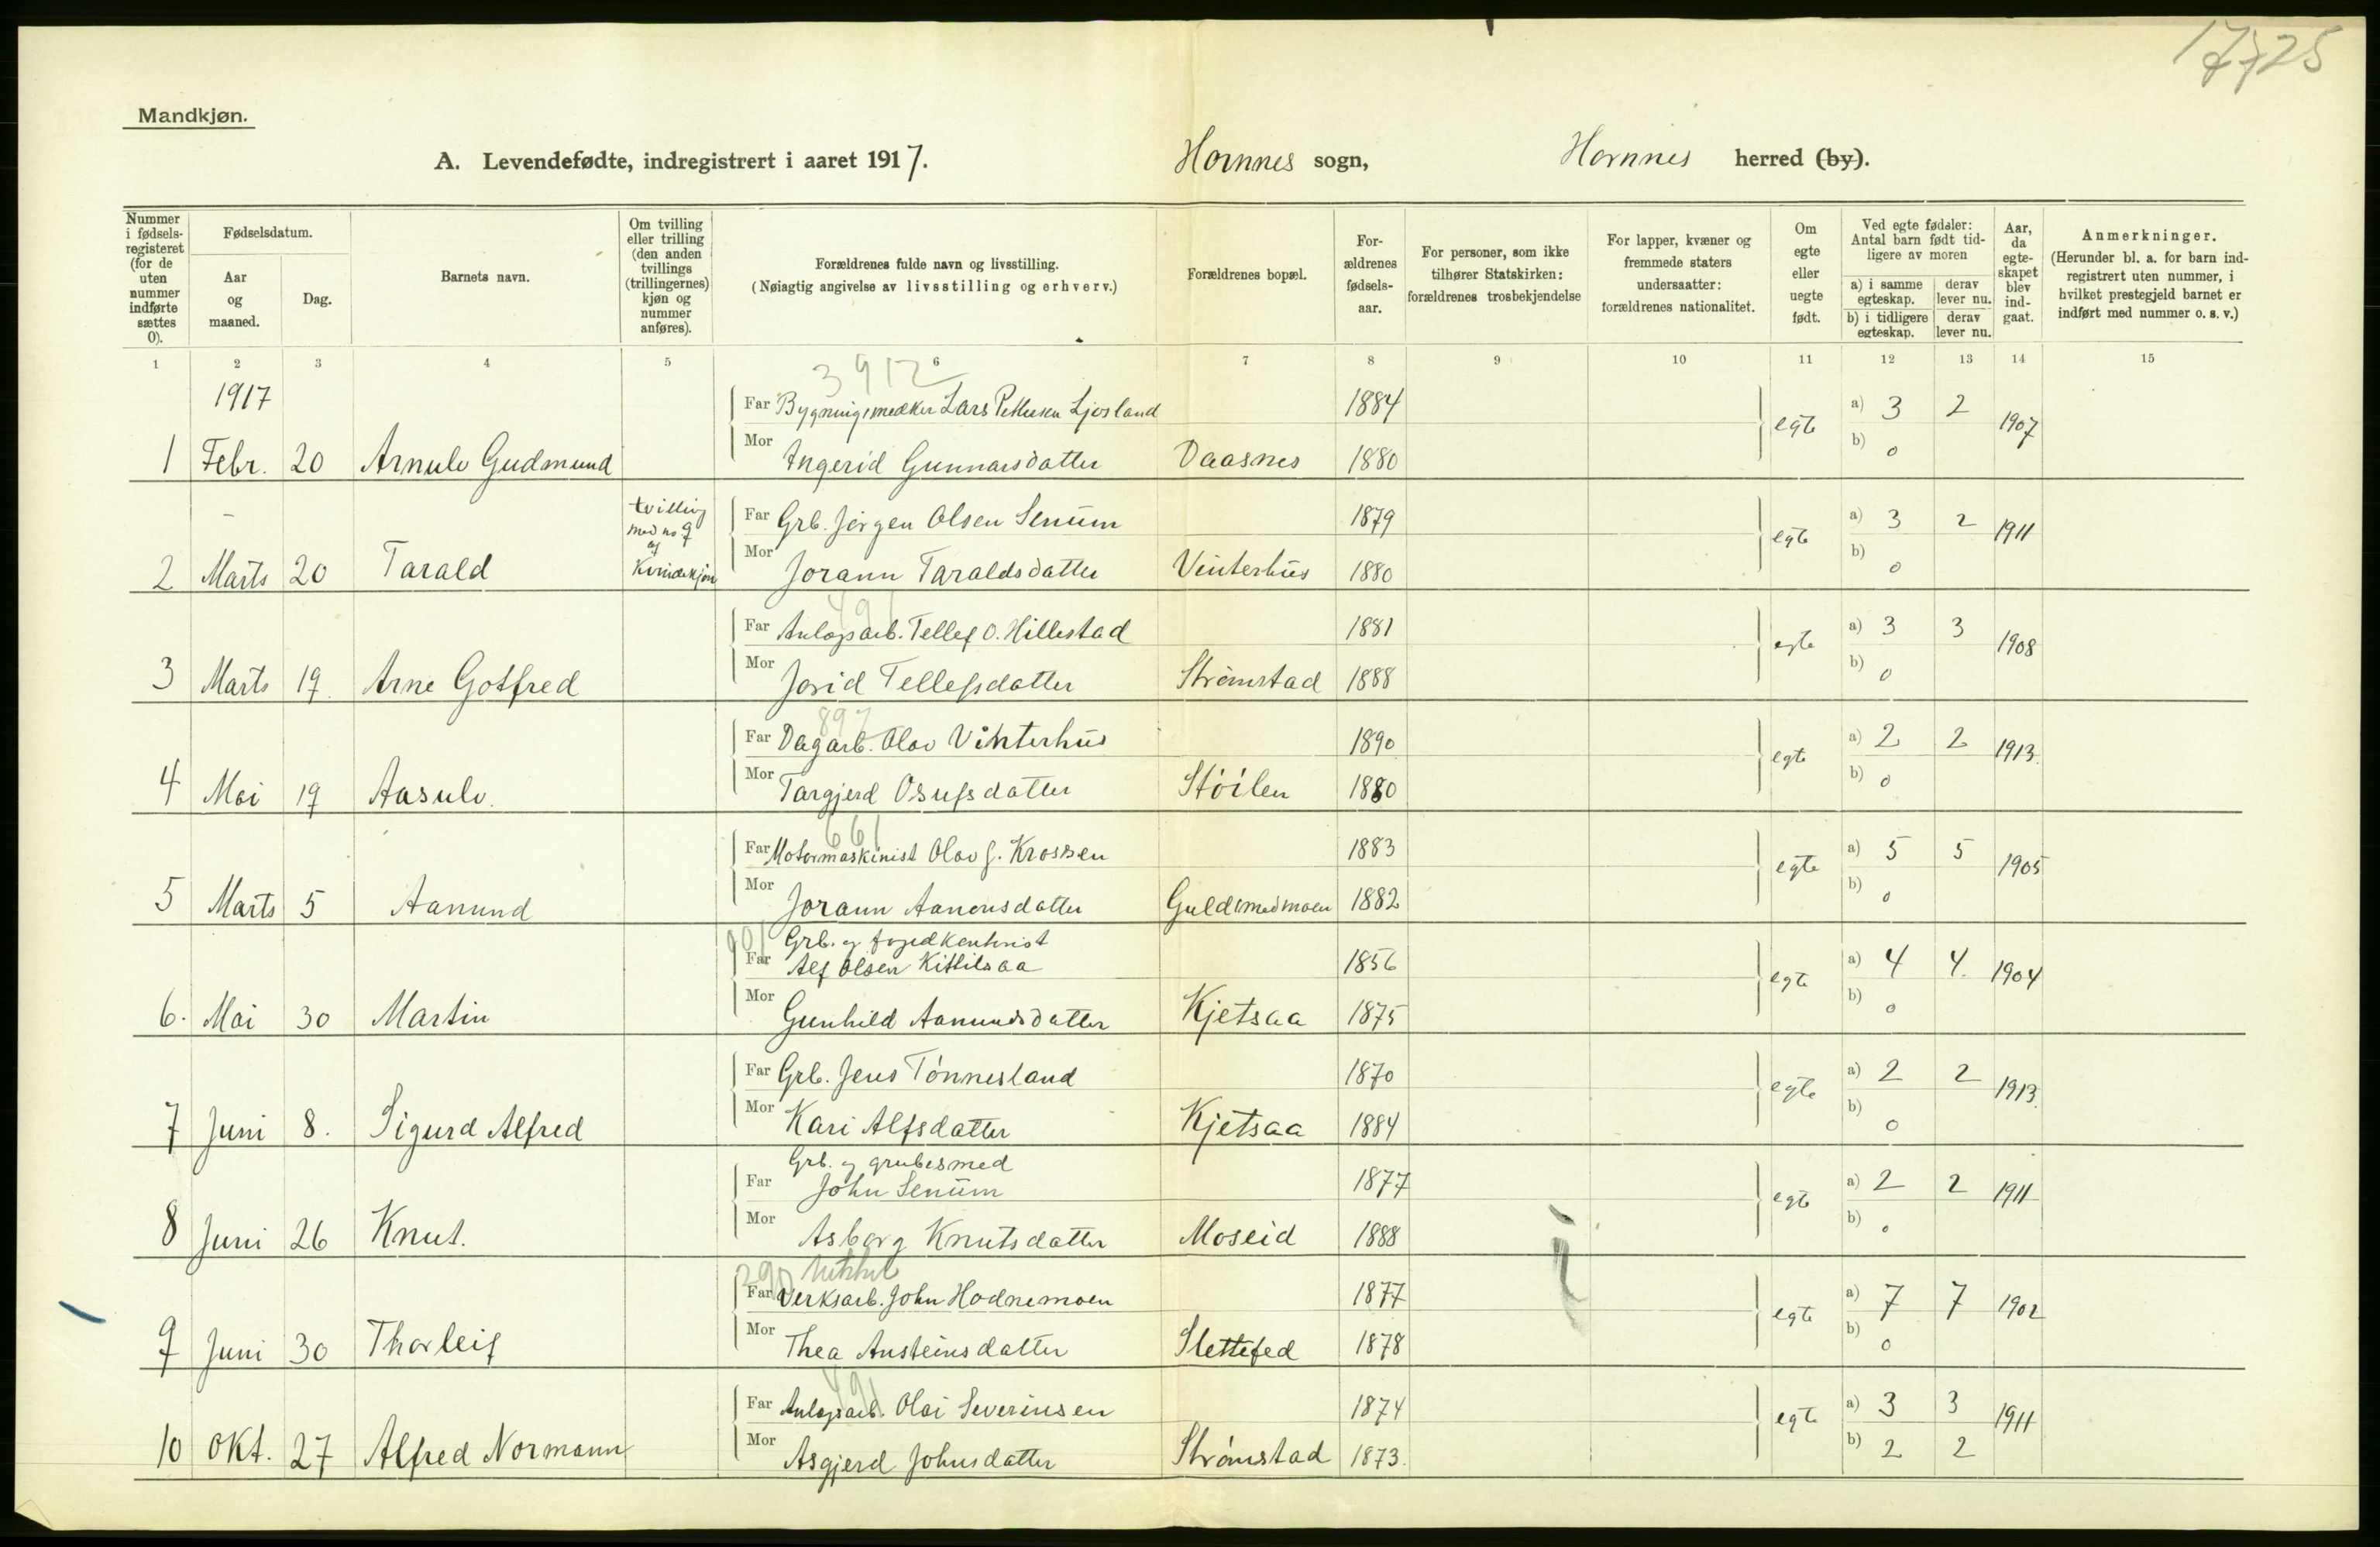 17725
Mandkjøn.
A. Levendefødte, indregistrert i aaret 1917. Hornnes sogn, Hornnes herred (by).
Nummer i fødsels-registeret (for de uten nummer indførte sættes 0).
Fødselsdatum.
Aar og maaned.
Dag.
Barnets navn.
Om tvilling eller trilling (den anden tvillings (trillingernes) kjøn og nummer anføres).
Forældrenes fulde navn og livsstilling.
(Nøiagtig angivelse av livsstilling og erhverv.)
Forældrenes bopæl.
For-ældrenes fødsels-aar.
For personer, som ikke tilhører Statskirken: forældrenes trosbekjendelse
For lapper, kvæner og fremmede staters undersaatter: forældrenes nationalitet.
Om egte eller uegte født.
Ved egte fødsler: Antal barn født tid-ligere av moren
a) i samme egteskap.
derav lever nu.
b) i tidligere egteskap.
derav lever nu.
Aar, da egte-skapet blev ind-gaat.
Anmerkninger.
(Herunder bl. a. for barn ind-registrert uten nummer, i hvilket prestegjeld barnet er indført med nummer o. s. v.)
1 2 3 4 5 6 7 8 9 10 11 12 13 14 15
3912
1917
Far Bygningsmedker Lars Pettersen Ljosland 1884 egte a) 3 2 1907
1 Febr. 20 Arnulv Gudmund Mor Ingerid Gunnarsdatter Daasnes 1880 b) 0
tvilling med no 9 af Kvindekjøn
Far Grb. Jørgen Olsen Senum 1879 egte a) 3 2 1911
2 Marts 20 Tarald Mor Jorann Taraldsdatter Vinterhus 1880 b) 0
491
Far Anlagsarb. Tellef O. Hillestad 1881 egte a) 3 3 1908
3 Marts 19. Arne Gotfred Mor Jorid Tellefsdatter Strømstad 1888 b) 0
897
Far Dagarb. Olav Vinterhus 1890 egte a) 2 2 1913.
4 Mai 19 Aasulv. Mor Targjerd Osufsdatter Støilen 1880 b) 0
661
Far Motormaskinist Olav J. Krossen 1883 egte a) 5 5 1905
5 Marts 5 Aanund Mor Jorann Aanensdatter Guldsmedmoen 1882 b) 0
901 Grb. og
Far Alf Olsen Kittilsaa 1856 egte a) 4 4. 1904
6. Mai 30 Martin Mor Gunhild Aanundsdatter Kjetsaa 1875 b) 0
Far Grb. Jens Tønnesland 1870 egte a) 2 2 1913
7 Juni 8. Sigurd Alfred Mor Kari Alfsdatter Kjetsaa 1884 b) 0
Grb. og grubesmed
Far John Senum 1877 egte a) 2 2 1911
8 Juni 26 Knut. Mor Asborg Knutsdatter Moseid 1888 b) 0
290
Far Verksarb. John Hodnemoen 1877 egte a) 7 7 1902
9 Juni 30 Thorleif Mor Thea Austeinsdatter Slettefed 1878 b) 0
491
Far Anlagsarb. Olai Severinsen 1874 egte a) 3 3 1911
10 Okt. 27 Alfred Normann Mor Asgjerd Johnsdatter Strømstad 1873. b) 2 2